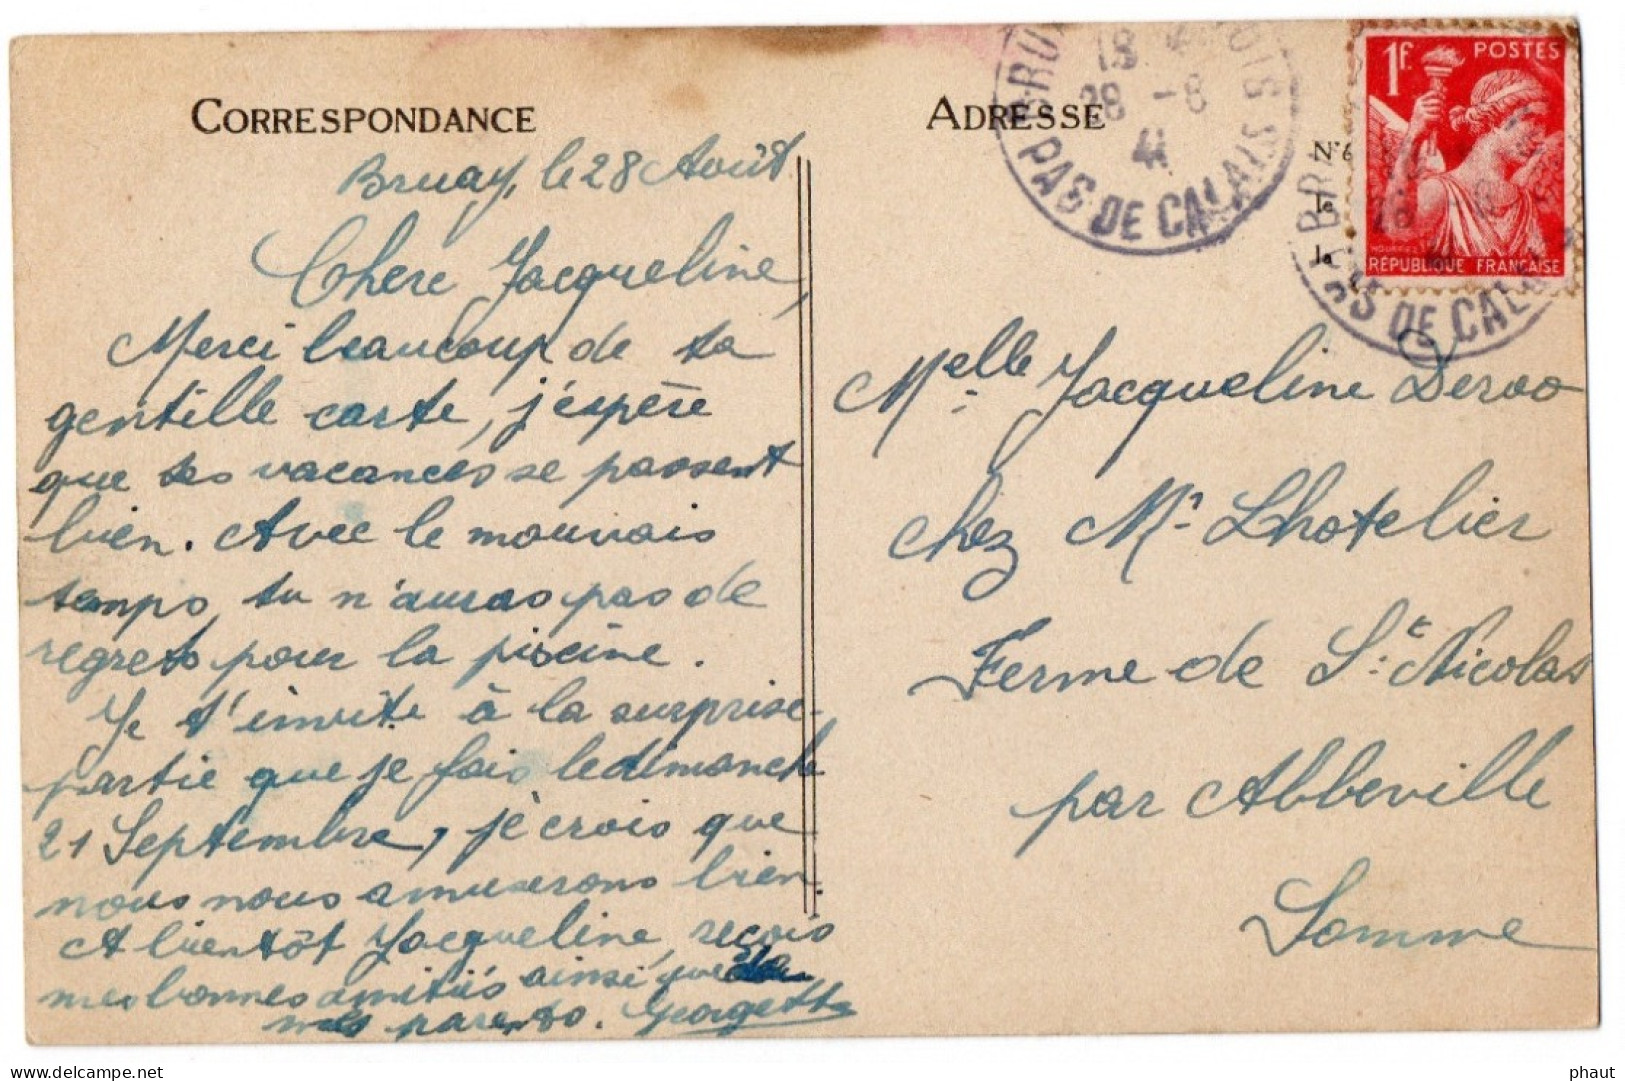 CORRESPONDANCE
Bruay, le 28 Août
Chere Jacqueline,
Merci beaucoup de ta
gentille carte, j'espère
que tes vacances se passent
bien. Avec le mauvais
temps, tu n'auras pas de
regrets pour la piscine.
Je t'invite à la surprise-
partie que je fais le dimanche
21 Septembre, je crois que
nous nous amuserons bien.
A bientôt Jacqueline, reçois
mes bonnes amitiés ainsi que
mes parents. Georgette
ADRESSE
N°6
le
la
18
28 -8
41
PAS DE CALAIS
1F. POSTES
RÉPUBLIQUE FRANÇAISE
Melle Jacqueline Deroo
chez Mr Lhotelier
Ferme de St Nicolas
par Abbeville
Somme
phaut